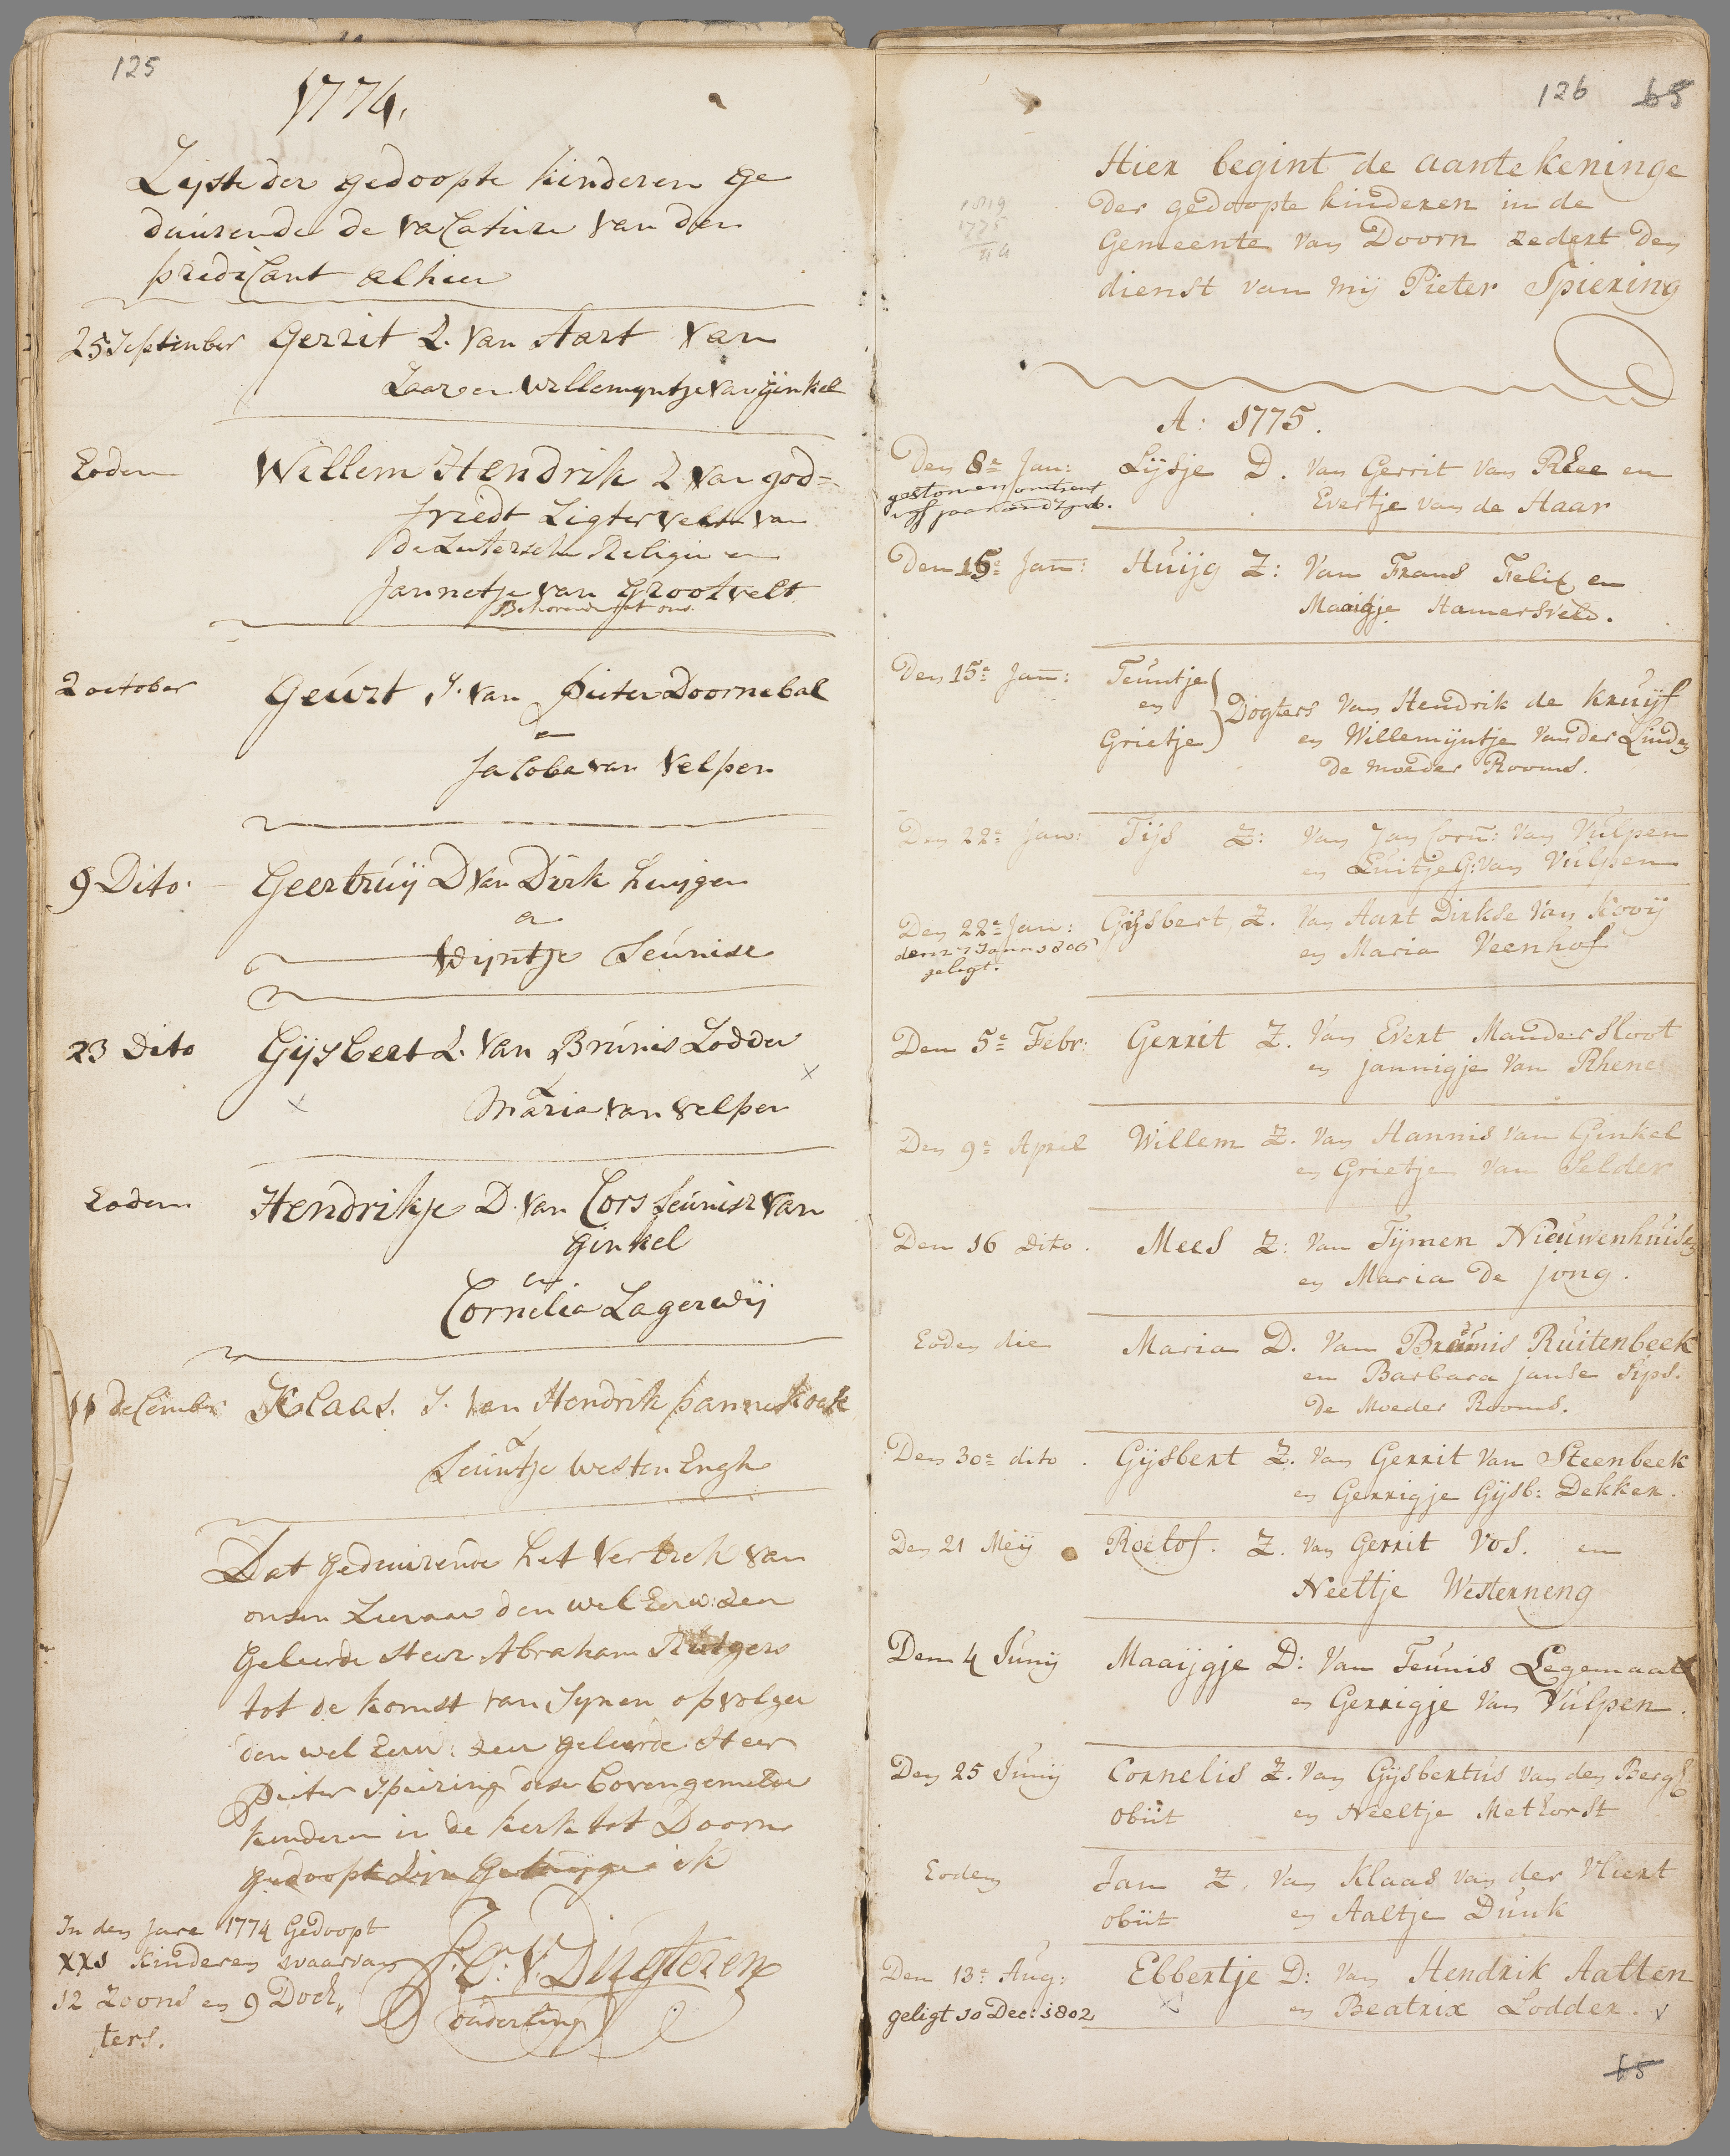 125
1774.
Lijste der gedoopte kinderen ge
duurende de vaCature van den
prediCant alhier
25 September Gerrit Z. van Aart van
Laar en Willemyntje van ginkel
Eodem Willem Hendrik Z van god=
friedt Ligtervelt van
de Lutersche Religie en
Jannetje van Grootvelt
Behorende tot ons
2 october Geurt Z. van Pieter Doornebal
en
JaCoba van Velpen
9 Dito. Geertruij D van Dirk Huijgen
en
Wijntje Teunisse
23 Dito Gijsbert Z. van Brunis Lodder
x x
Maria van velpen
Eodem Hendrikje D. van Cors Teunisz van
Ginkel
en
Cornelia Lagerwij
11 deCember Klaas. Z. van Hendrik pannekoek
&
Teuntje westen Engh
Dat geduurende het Vertrek van
onsen Leeraar den wel Eerw: zeer
Geleerde Heer Abraham Rutgers
tot de komst van Synen opvolger
den wel Eerw: zeer geleerde Heer
Pieter Spiering dese bovengemelde
kinderen in de kerk tot Doorn
gedoopt zijn getuijge ik
In den Jare 1774 Gedoopt
xxs kinderen waarvan
12 Zoons en 9 Doch„
ters.
V. Dugteren
ouderling
126 65
1819
1775
44
Hier begint de aantekeninge
der gedoopte kinderen in de
Gemeente van Doorn zedert den
dienst van mij Pieter Spiering
A: 1775.
Den 8e Jan: Lijsje D. van Gerrit van Rhee en
gestorven omtrent
jaar
Evertje van de Haar
Den 15e Jan: Huijg Z: van Frans Felix en
Maaigje Hamersveld.
Den 15e Jan: Teuntje
en Dogters van Hendrik de Kruijf
Grietje en Willemijntje van der Linden
De moeder Rooms.
Den 22e Jan: Tijs Z: van Jan Corn: van Vulpen
en Luitje G: van Vulpen
Den 22e Jan: Gijsbert, Z. van Aart Dirkse van Kooij
den 27 Jann 1806
geligt.
en Maria Veenhof
Den 5e Febr: Gerrit Z. van Evert Mandersloot
en jannigje van Rhene
Den 9e April Willem Z. van Hannis van Ginkel
en Grietje van Selder
Den 16 dito. Mees Z: van Tijmen Nieuwenhuisen
en Maria de jong.
Eodem die Maria D. van Brunis Ruitenbeek
en Barbara janse Sips.
De Moeder Rooms.
Den 30e dito. Gijsbert Z. van Gerrit van Steenbeek
en Gerrigje Gijsb: Dekker.
Den 21 Meij Roelof. Z. van Gerrit Vos. en
Neeltje Westerneng
Den 4 Junij Maaijgje D: van Teunis Legemaat
en Gerrigje van Vulpen.
Den 25 Junij Cornelis Z. van Gijsbertus van den Bergh
obiit en Neeltje Methorst
Eodem Jan Z. van Klaas van der Vliert
obiit en Aaltje Duuk
Den 13e Aug: Ebbertje D: van Hendrik Aalten
geligt 10 Dec: 1802 x en Beatrix Lodder. x
65